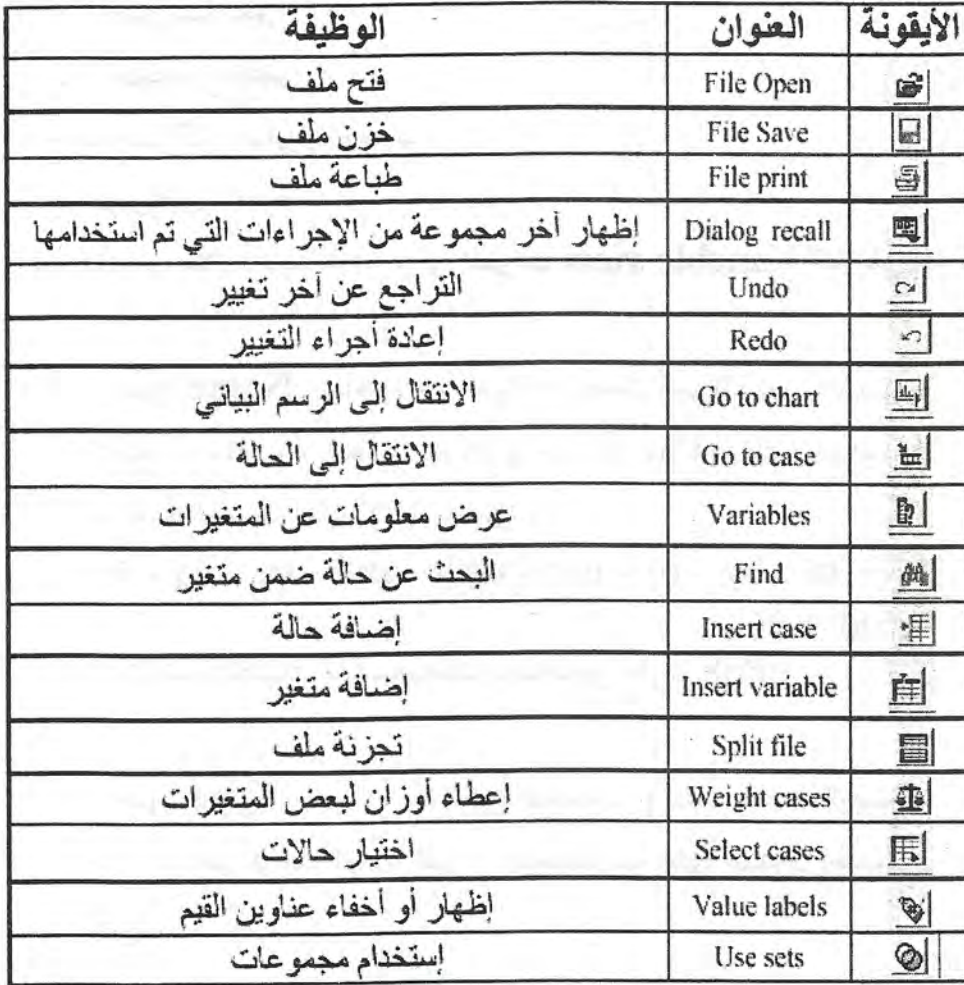 الأيقونة العنوان الوظيفة
File Open فتح ملف
File Save خزن ملف
File print طباعة ملف
Dialog recall إظهار آخر مجموعة من الإجراءات التي تم استخدامها
Undo التراجع عن آخر تغيير
Redo إعادة أجراء التغيير
Go to chart الانتقال إلى الرسم البياني
Go to case الانتقال إلى الحالة
Variables عرض معلومات عن المتغيرات
Find البحث عن حالة ضمن متغير
Insert case إضافة حالة
Insert variable إضافة متغير
Split file تجزئة ملف
Weight cases إعطاء أوزان لبعض المتغيرات
Select cases اختيار حالات
Value labels إظهار أو أخفاء عناوين القيم
Use sets إستخدام مجموعات